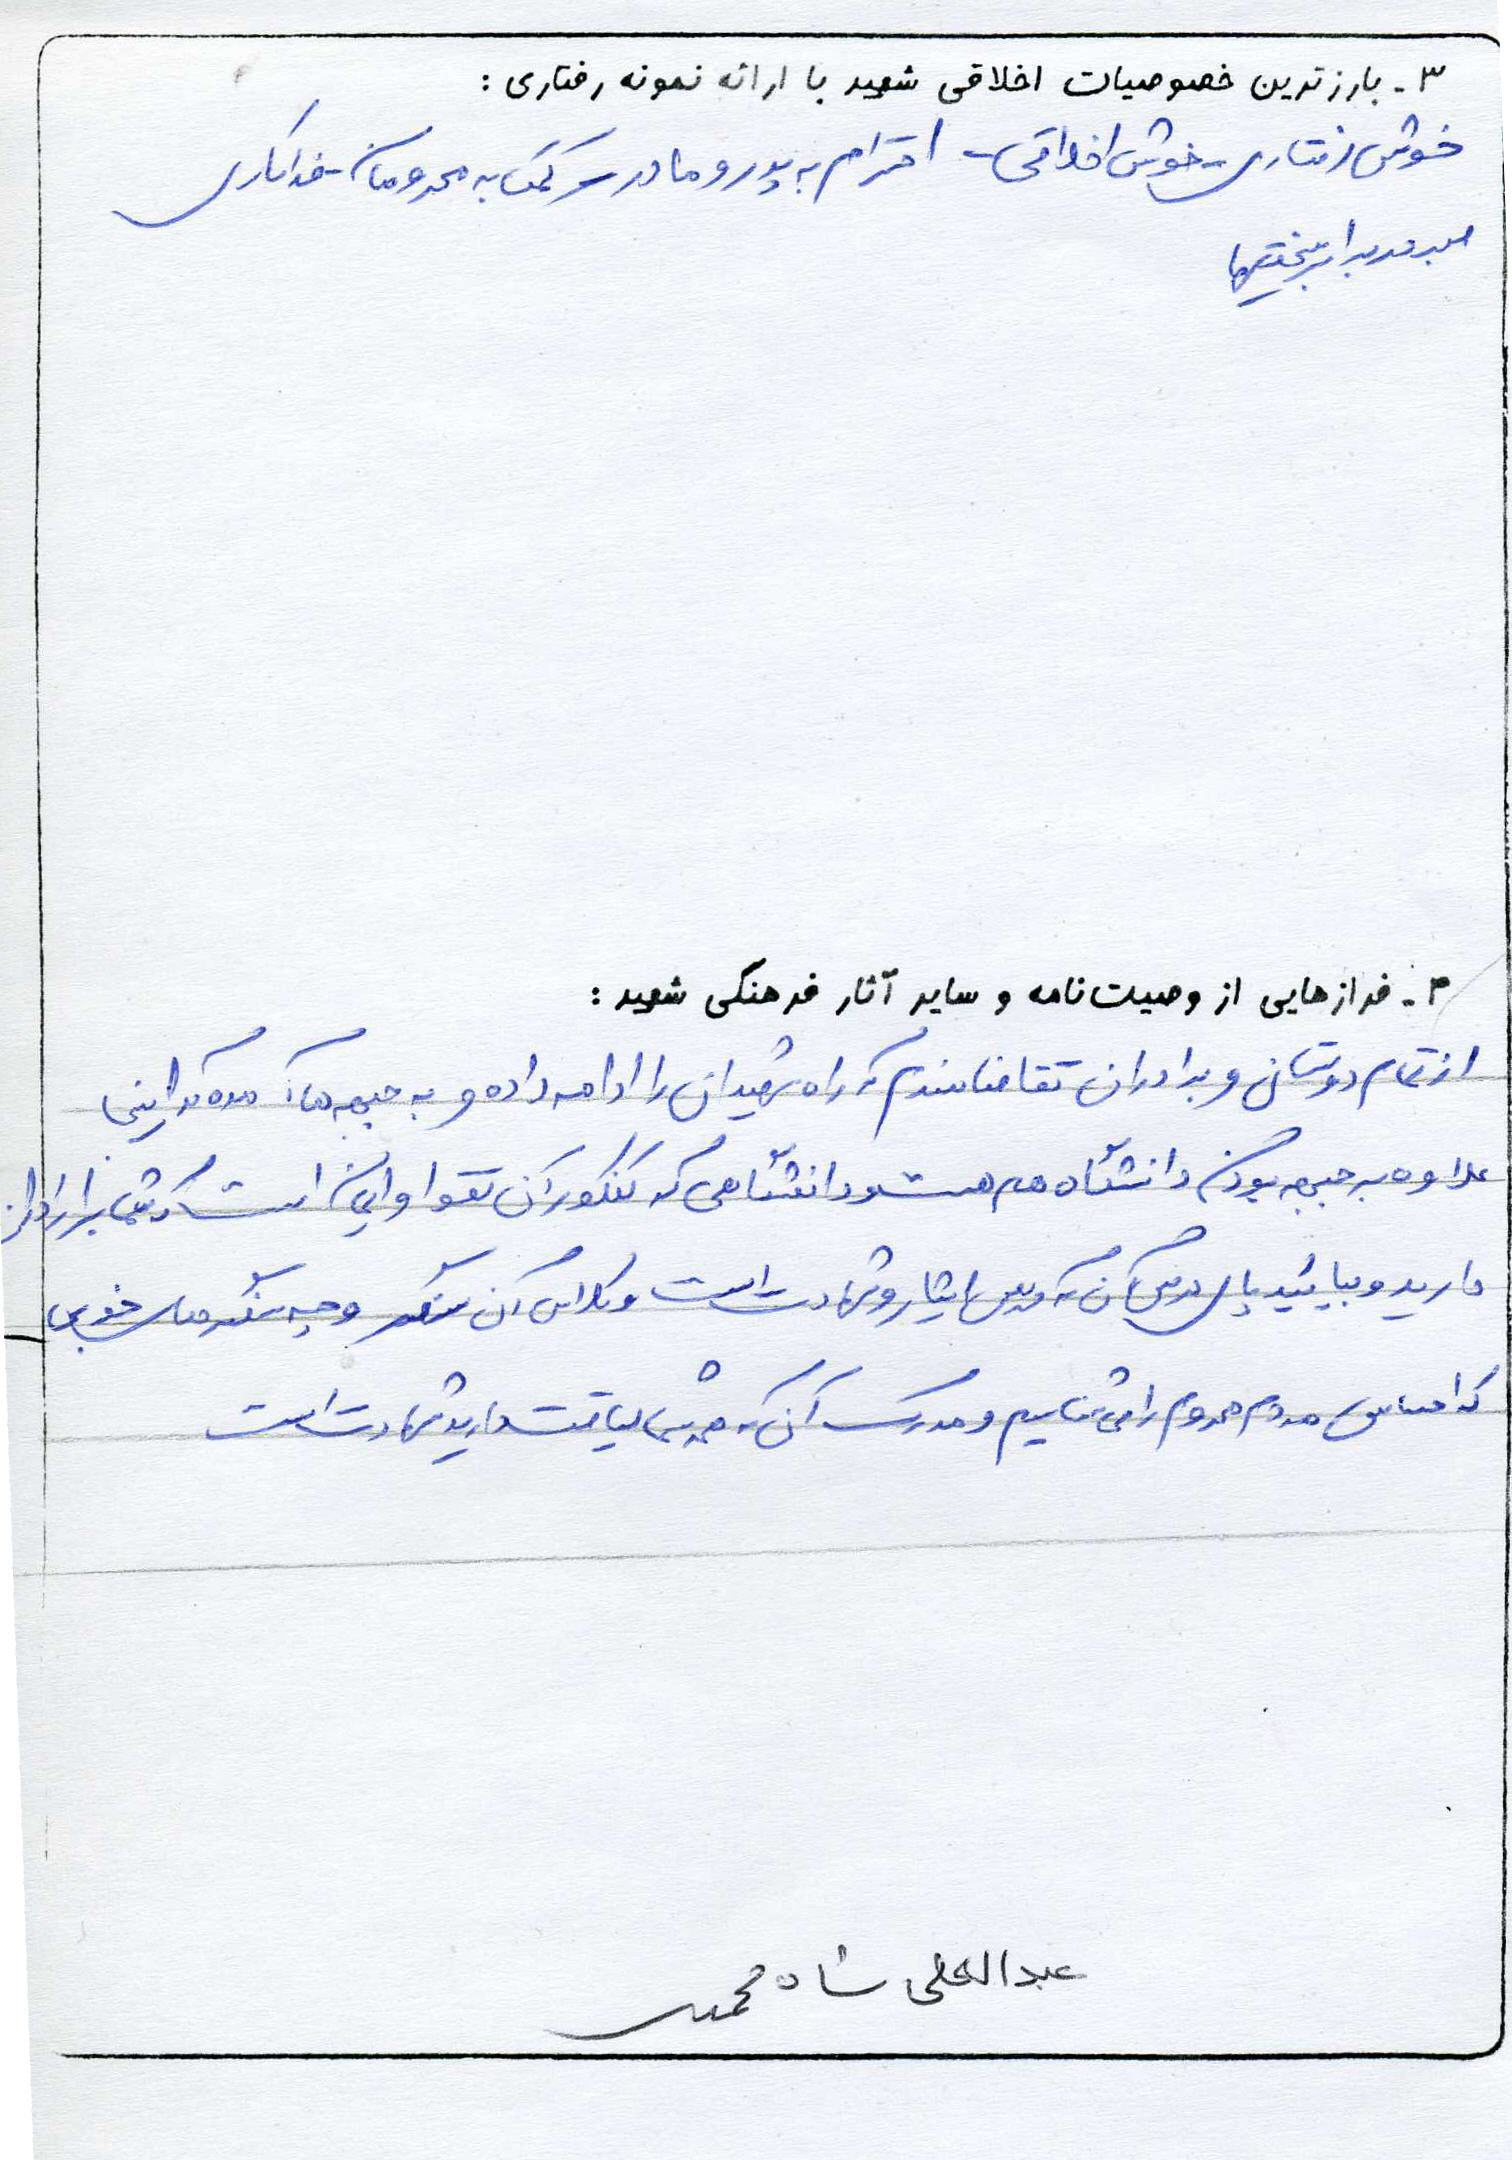 ۳- بارزترین خصوصیات اخلاقی شهید با ارائه نمونه رفتاری :
خوش رفتاری - خوش اخلاقی - احترام به پدر و مادر - کمک به محرومان - فداکاری
صبر در برابر سختیها
۴- فرازهایی از وصیت‌نامه و سایر آثار فرهنگی شهید :
از تمام دوستان و برادران تقاضامندم که راه شهیدان را ادامه داده و به جبهه ها آمده که اینجا
علاوه به جبهه بودن دانشگاه هم هست و دانشگاهی که کنکور آن تقوا و ایمان است که شما برادران
دارید و بیائید پای درس آن که درس ایثار و شهادت است و کلاس آن سنگر و چه سنگرهای خوبی
که احساس مردم محروم را می شناسیم و مدرک آن که همه شما لیاقت دارید شهادت است
عبدالعلی شاه محمدی